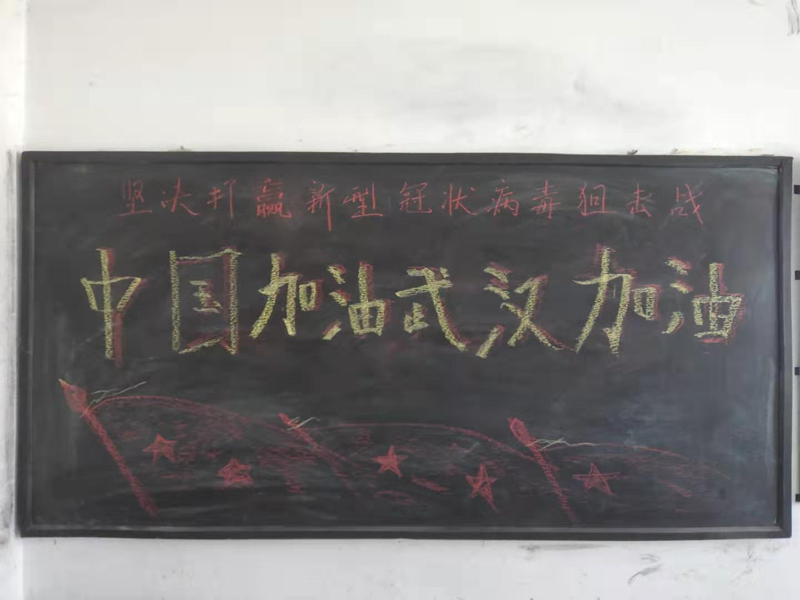 坚决打赢新型冠状病毒狙击战
中国加油武汉加油